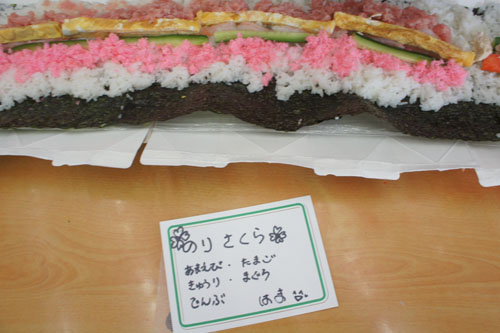 のりさくら
あまえび・たまご
きゅうり・まぐろ
でんぶ